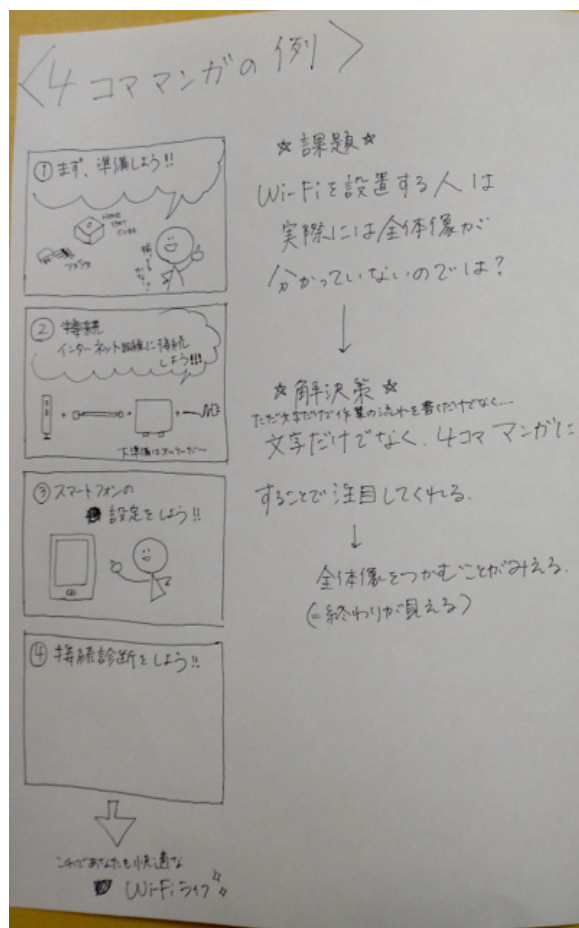 <4コママンガの例>
①まず、準備しよう!!
HOME
SPOT
CUBE
アダプタ
揃ってるかな?
②接続
インターネット回線に接続
しよう!!!
下準備はオッケーだ〜
③スマートフォンの
設定をしよう!!
④接続診断をしよう!!
これであなたも快適な
Wi-Fiライフ
☆課題☆
Wi-Fiを設置する人は
実際には全体像が
分かっていないのでは?
↓
☆解決策☆
ただ文字だけで作業の流れを書くだけでなく…
文字だけでなく、4コママンガに
することで注目してくれる.
↓
全体像をつかむことがみえる.
(=終わりが見える)